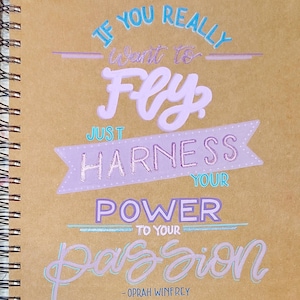 IF YOU REALLY
Want to
Fly,
JUST
HARNESS
YOUR
POWER
TO YOUR
passion
-OPRAH WINFREY